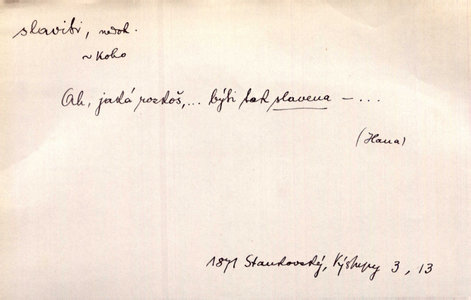 slaviti, nedok.
~ koho
Ah, jaká rozkoš,... býti tak slavena —...
(Hana)
1871 Stankovský, Výstupy 3, 13